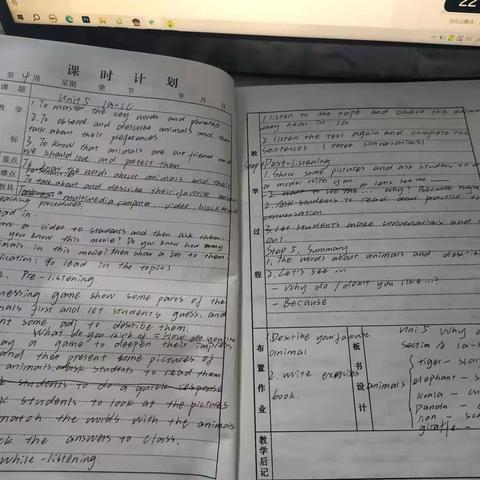 22
课 时 计 划
第 4 周 星期 第 节 年 月 日
课 题 Unit 5 1a-1c
教 学 目 标
1. To master the key words and phrases
2. To observe and describe animals and then
talk about their preferences
3. To know that animals are our friend and
we should love and protect them
重点 the words about animals and their
难点 talk about and describe their favorite
教具 multimedia computer, video, blackboard
procedures.
ead in:
how a video to students and then ask them.
you know this movie? Do you know how many
imals in this movie? then show a zoo to them.
ication: to lead in the topic)
2. Pre-listening
uessing game show some parts of the
mals first and let students guess. and
nt some adj to describe them.
What do you think of
ay a game to deepen their impress
and then present some pictures of
animals. ask students to read them
students to do a quick response
k students to look at the pictures
match the words with the animals
ck the answers to class.
While-listening
教 学 过 程
1. listen to the tape and check the animals
they hear in 1a
2. listen the text again and complete the
sentences (three conversations)
Step Post-listening
1. Show some pictures and ask students to
a model with you
let's see the
Why? Because
ask students to read and practice
conversation.
3. Let students make conversations and
out.
Step 5. Summary
1. The words about animals and describe
2. Let's see ...
- Why do / don't you like ...?
- Because
布置作业
1. Describe your favorite
animal.
2. write exercises
book.
板书设计
Unit 5 Why
Section A 1a-1
animals
tiger - scar
elephant - s
koala - cu
panda - c
lion - sc
giraffe -
教学后记